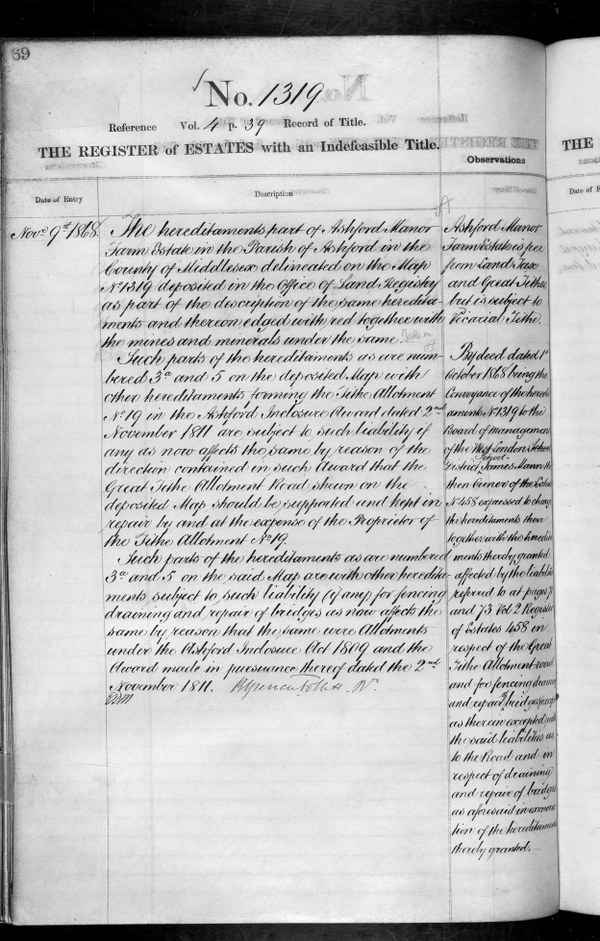 69
No. 1319
Reference Vol. 4 p. 39 Record of Title.
THE REGISTER of ESTATES with an Indefeasible Title.
Observations
Date of Entry
Description
Novr 9th 1868.
The hereditaments part of Ashford Manor
Farm Estate in the Parish of Ashford in the
County of Middlesex delineated on the Map
No 1319 deposited in the Office of Land Registry
as part of the description of the same heredita-
ments and thereon edged with red together with
the mines and minerals under the same.
Such parts of the hereditaments as are num-
bered 3a and 5 on the deposited Map with
other hereditaments forming the Tithe Allotment
No 19 in the Ashford Inclosure Award dated 2nd
November 1811 are subject to such liability if
any as now affects the same by reason of the
direction contained in such Award that the
Great Tithe Allotment Road shewn on the
deposited Map should be supported and kept in
repair by and at the expense of the Proprietor of
the Tithe Allotment No 19.
Such parts of the hereditaments as are numbered
3a and 5 on the said Map are with other heredita-
ments subject to such liability (if any) for fencing
draining and repair of bridges as now affects the
same by reason that the same were Allotments
under the Ashford Inclosure Act 1809 and the
Award made in pursuance thereof dated the 2nd
November 1811.
Ashford Manor
Farm Estate is free
from Land Tax
and Great Tithes
but is subject to
Vicarial Tithe.
By deed dated 1st
October 1868 being the
Conveyance of the heredit
aments No 1319 to the
Board of management
of the West London School
District James Mann the
then Owner of the Estate
No 458 expressed to charge
the hereditaments then
together with the heredita
ments thereby granted
affected by the liabilities
referred to at pages 7
and 73 Vol 2 Register
of Estates 458 in
respect of the Great
Tithe Allotment road
and for fencing draining
and repair bridges
as therein excepted with
the said liabilities as
to the Road and in
respect of draining
and repair of bridges
as aforesaid in exonera
tion of the hereditaments
thereby granted.
THE
Date of E